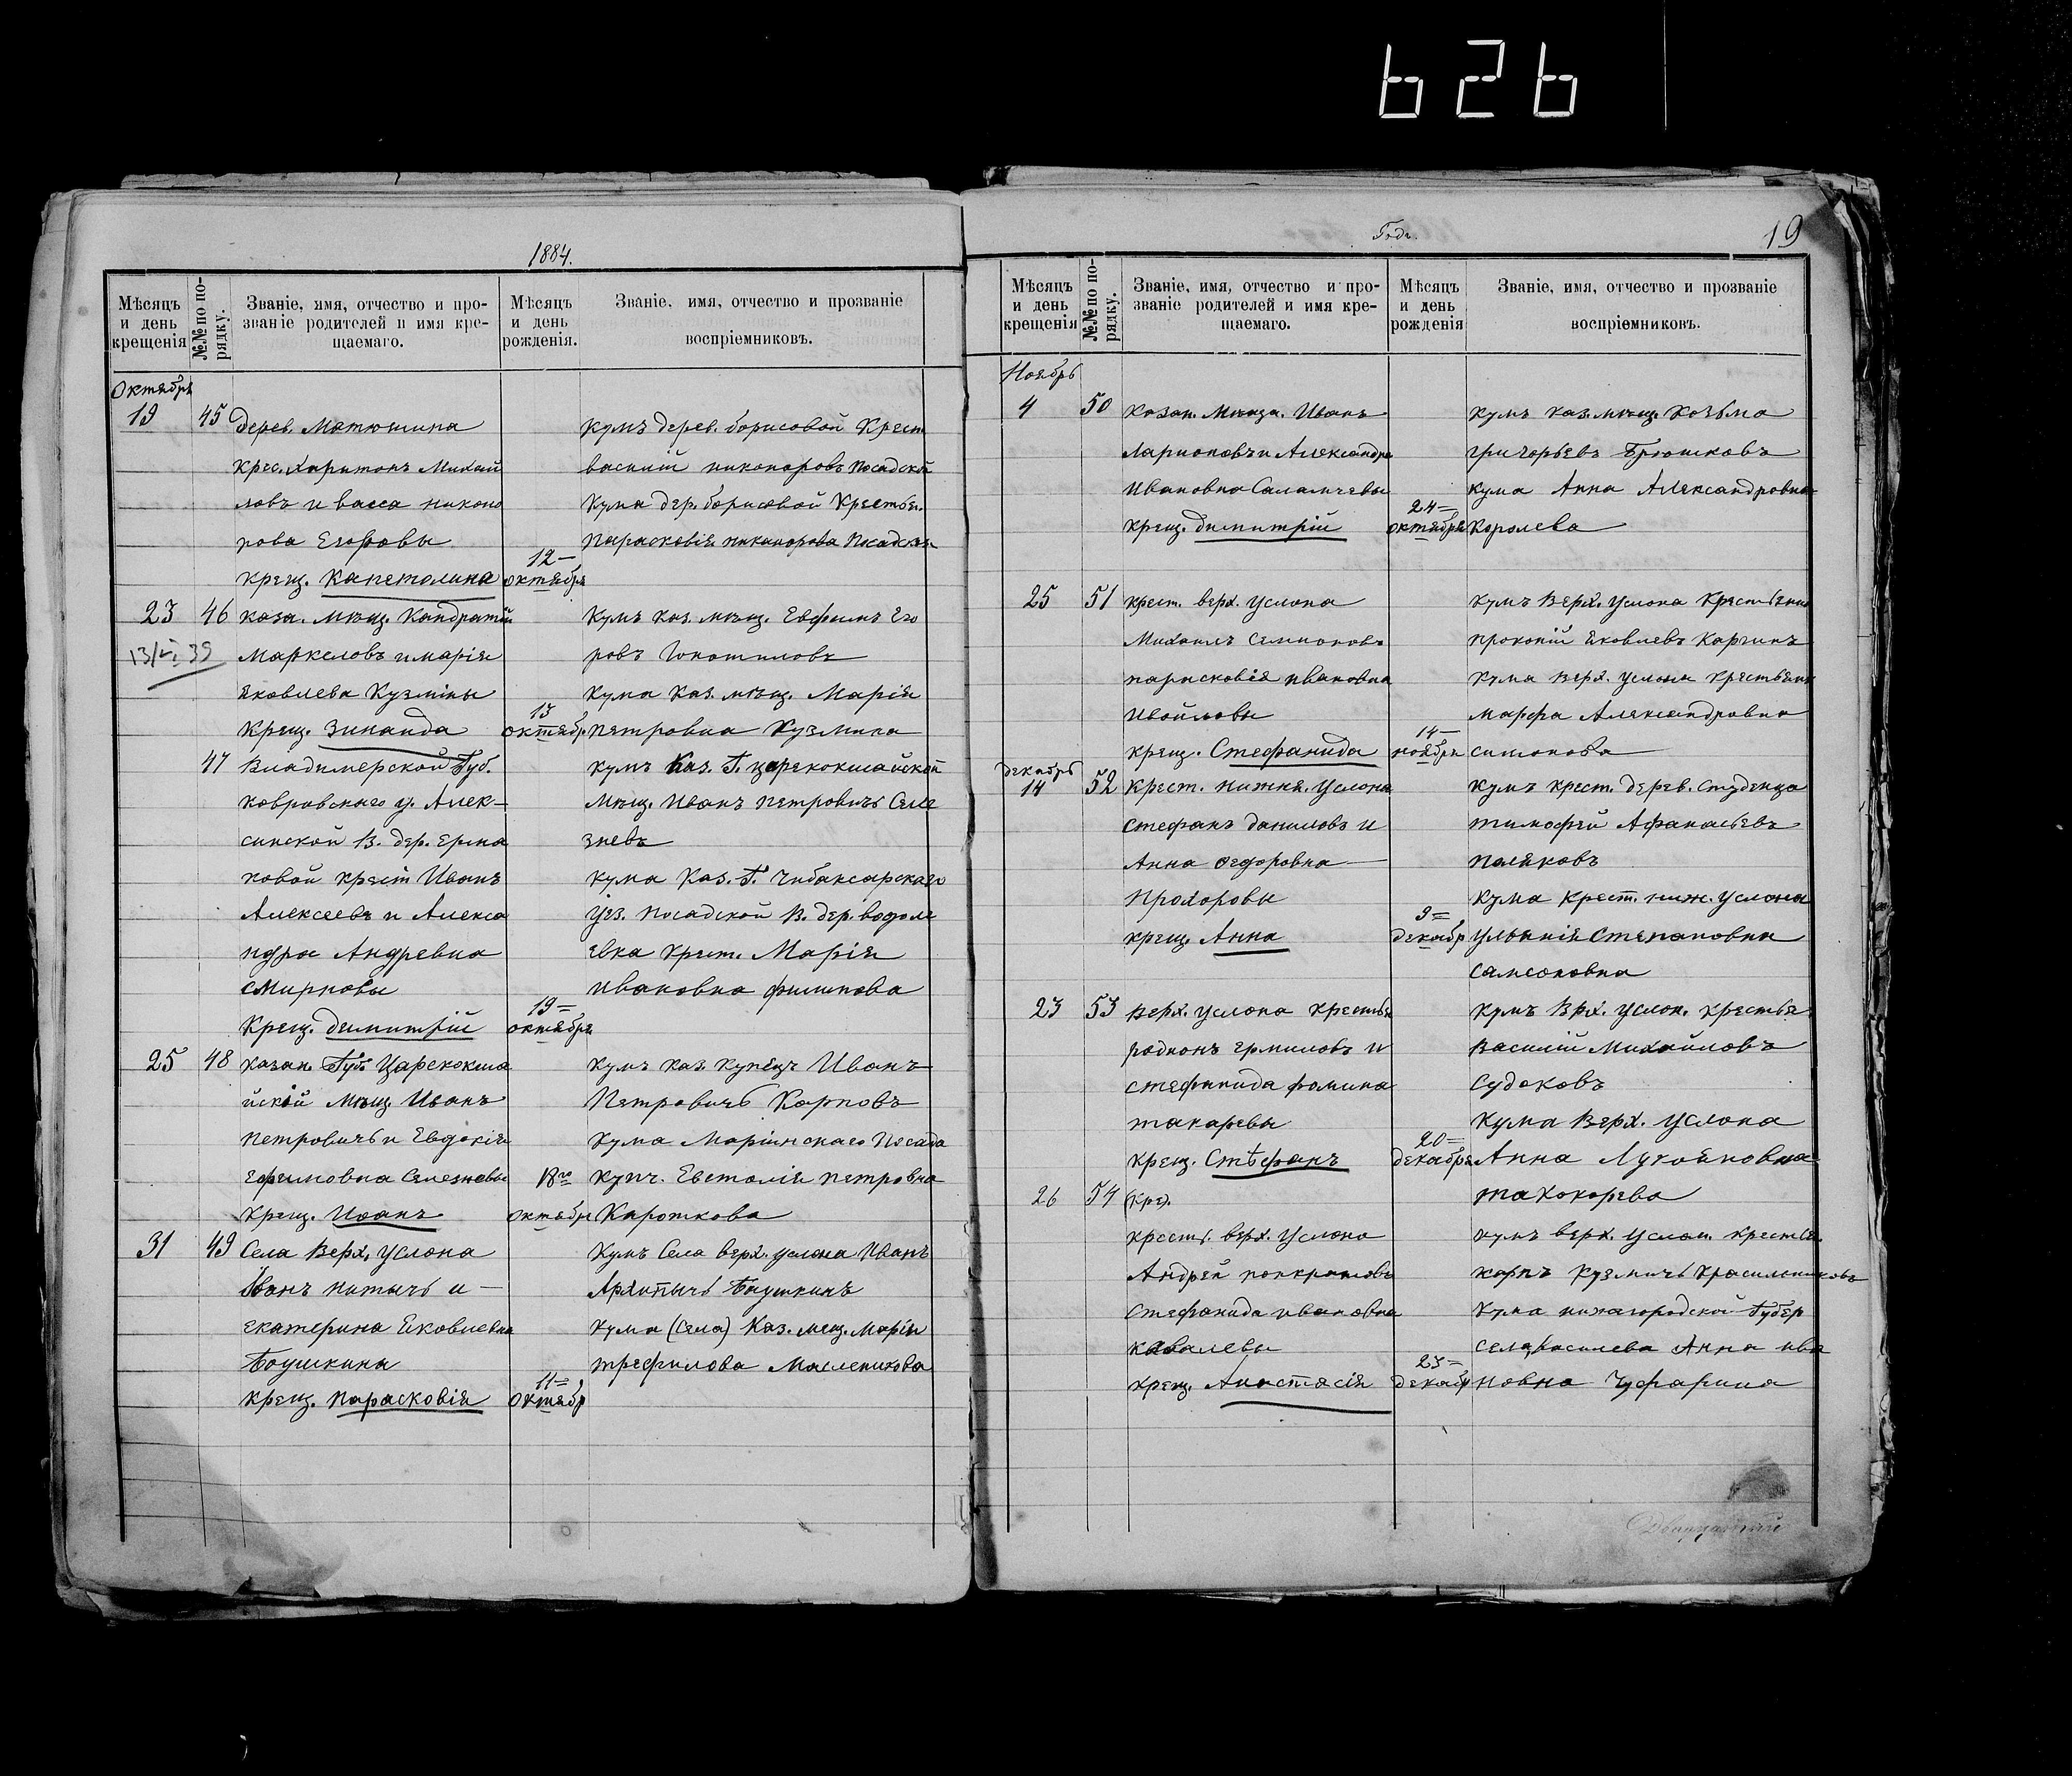 626
1884.
Мѣсяцъ и день крещенія
№№ по порядку.
Званіе, имя, отчество и прозваніе родителей и имя крещаемаго.
Мѣсяцъ и день рожденія.
Званіе, имя, отчество и прозваніе воспріемниковъ.
Октябрь
19 45 дерев. Матюшина
Крес. Харитонъ Михай
ловъ и васса никоно
рова Егоровы
крещ. Капетолина
12 октября
Кумъ дерев. борисовой Крест
василій никоноровъ Посадской
Кума дер. борисовой Крестьян.
Парасковія никанорова Посадская
23 46 каза. мѣщ. Кандратій
13/V 39
Маркеловъ и марія
яковлева Кузмины
Крещ. Зинаида
13 октябр
Кумъ каз. мѣщ. Евфимъ Его
ровъ
Кума каз. мѣщ. Марія
петровна Кузмина
47 Владимерской Губ.
ковровскаго у. Алек-
синской В. дер. Ерма
ковой крест Иванъ
Алексеевъ и Алекса
ндра Андревна
смирновы
Крещ. димитрій
19 октября
кумъ Каз. Г. царекокшайской
мѣщ. Иванъ петровичъ Селе
зневъ
кума Каз. Г. Чибаксарскаго
уез. посадской В. дер. водоле
евка крест. Марія
ивановна филипова
25 48 казан. Губ Царекокша
йскій мѣщ Иванъ
петровичъ и Евдокія
ефимовна Селезневы
Крещ. Иоанъ
18го октябр
кумъ каз. купецъ Иванъ
Петровичъ Карповъ
кума Маріинскаго Посада
купч. Евстолія петровна
Кароткова
31 49 Села Верх. Услона
Иванъ и
екатерина Яковлевна
Боушкины
крещ. парасковія
11 Октябр
Кумъ Села верх. услона Иванъ
Архипычъ Боушкинъ
кума (села) Каз. мещ. Марія
трефилова Масленикова
Годъ.
19
Мѣсяцъ и день крещенія
№№ по порядку.
Званіе, имя, отчество и прозваніе родителей и имя крещаемаго.
Мѣсяцъ и день рожденія
Званіе, имя, отчество и прозваніе воспріемниковъ.
Ноябрь
4 50 казан. Мѣща. Иванъ
Ларионовъ и Александра
Ивановна Саламчевы
крещ. димитрій
24 октября
кумъ каз. мѣщ. козьма
григорьевъ Брюшковъ
кума Анна Александровна
Королева
25 51 крест. верх. услона
Михаилъ Семионовъ
парасковія ивановна
Ивойловы
крещ. Стефанида
14 ноября
кумъ Верх. услона Крестьянин
прокопій Яковлевъ Каргинъ
кума верх. услона крестьянк
марфа Александровна
симонова
декабрь
14 52 Крест. нижня. Услона
стефанъ даниловъ и
Анна ѳедоровна
Прохоровы
крещ. Анна
9 декабр
кумъ крест. дерев. студенца
тимофей Афанасьевъ
поляковъ
кума крест. ниж. услона
ульянія степановна
самсоновна
23 53 верх. услона крестья
родионъ ермиловъ и
стефанида фомина
токаревы
крещ. Стѣфанъ
20 декабря
кумъ Врх. услон. крестья
василій Михайловъ
судаковъ
кума Верх. услона
Анна Лукойновна
та Кокорева
26 54 (кре).
крестъ. верх. Услона
Андрей понкратовъ
стефанида ивановна
ковалевы
крещ. Анастасія
23 декабр
кумъ верх. услон. крестья.
карпъ кузмичъ Красильниковъ
кума нижагородской Губер
села, василева Анна ива
новна Чуфарина
Двадцатый